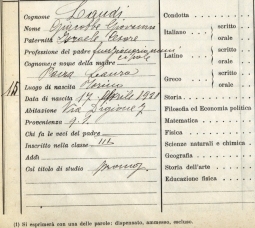 Cognome Landi
Nome Giacobbe Giovanni
Paternità Ercole Cesare
Professione del padre funzionario
Cognome e nome della madre
Luogo di nascita Torino
Data di nascita 17 Aprile 1921
Abitazione Via Digione 7
Provenienza
Chi fa le veci del padre
Inscritto nella classe III
Addì
Col titolo di studio promoz
115
Condotta
Italiano { scritto
orale
Latino { scritto
orale
Greco { scritto
orale
Storia
Filosofia ed Economia politica
Matematica
Fisica
Scienze naturali e chimica
Geografia
Storia dell'arte
Educazione fisica
(1) Si esprimerà con una delle parole: dispensato, ammesso, escluso.